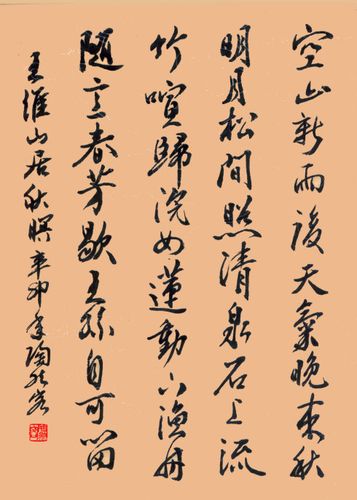 空山新雨後天氣晚来秋
明月松間照清泉石上流
竹喧歸浣女蓮動下漁舟
隨意春芳歇王孫自可留
王維山居秋暝辛卯年陶然客